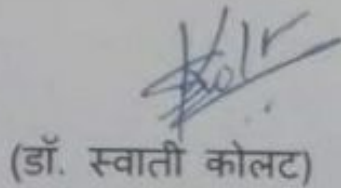 (डॉ. स्वाती कोलट)